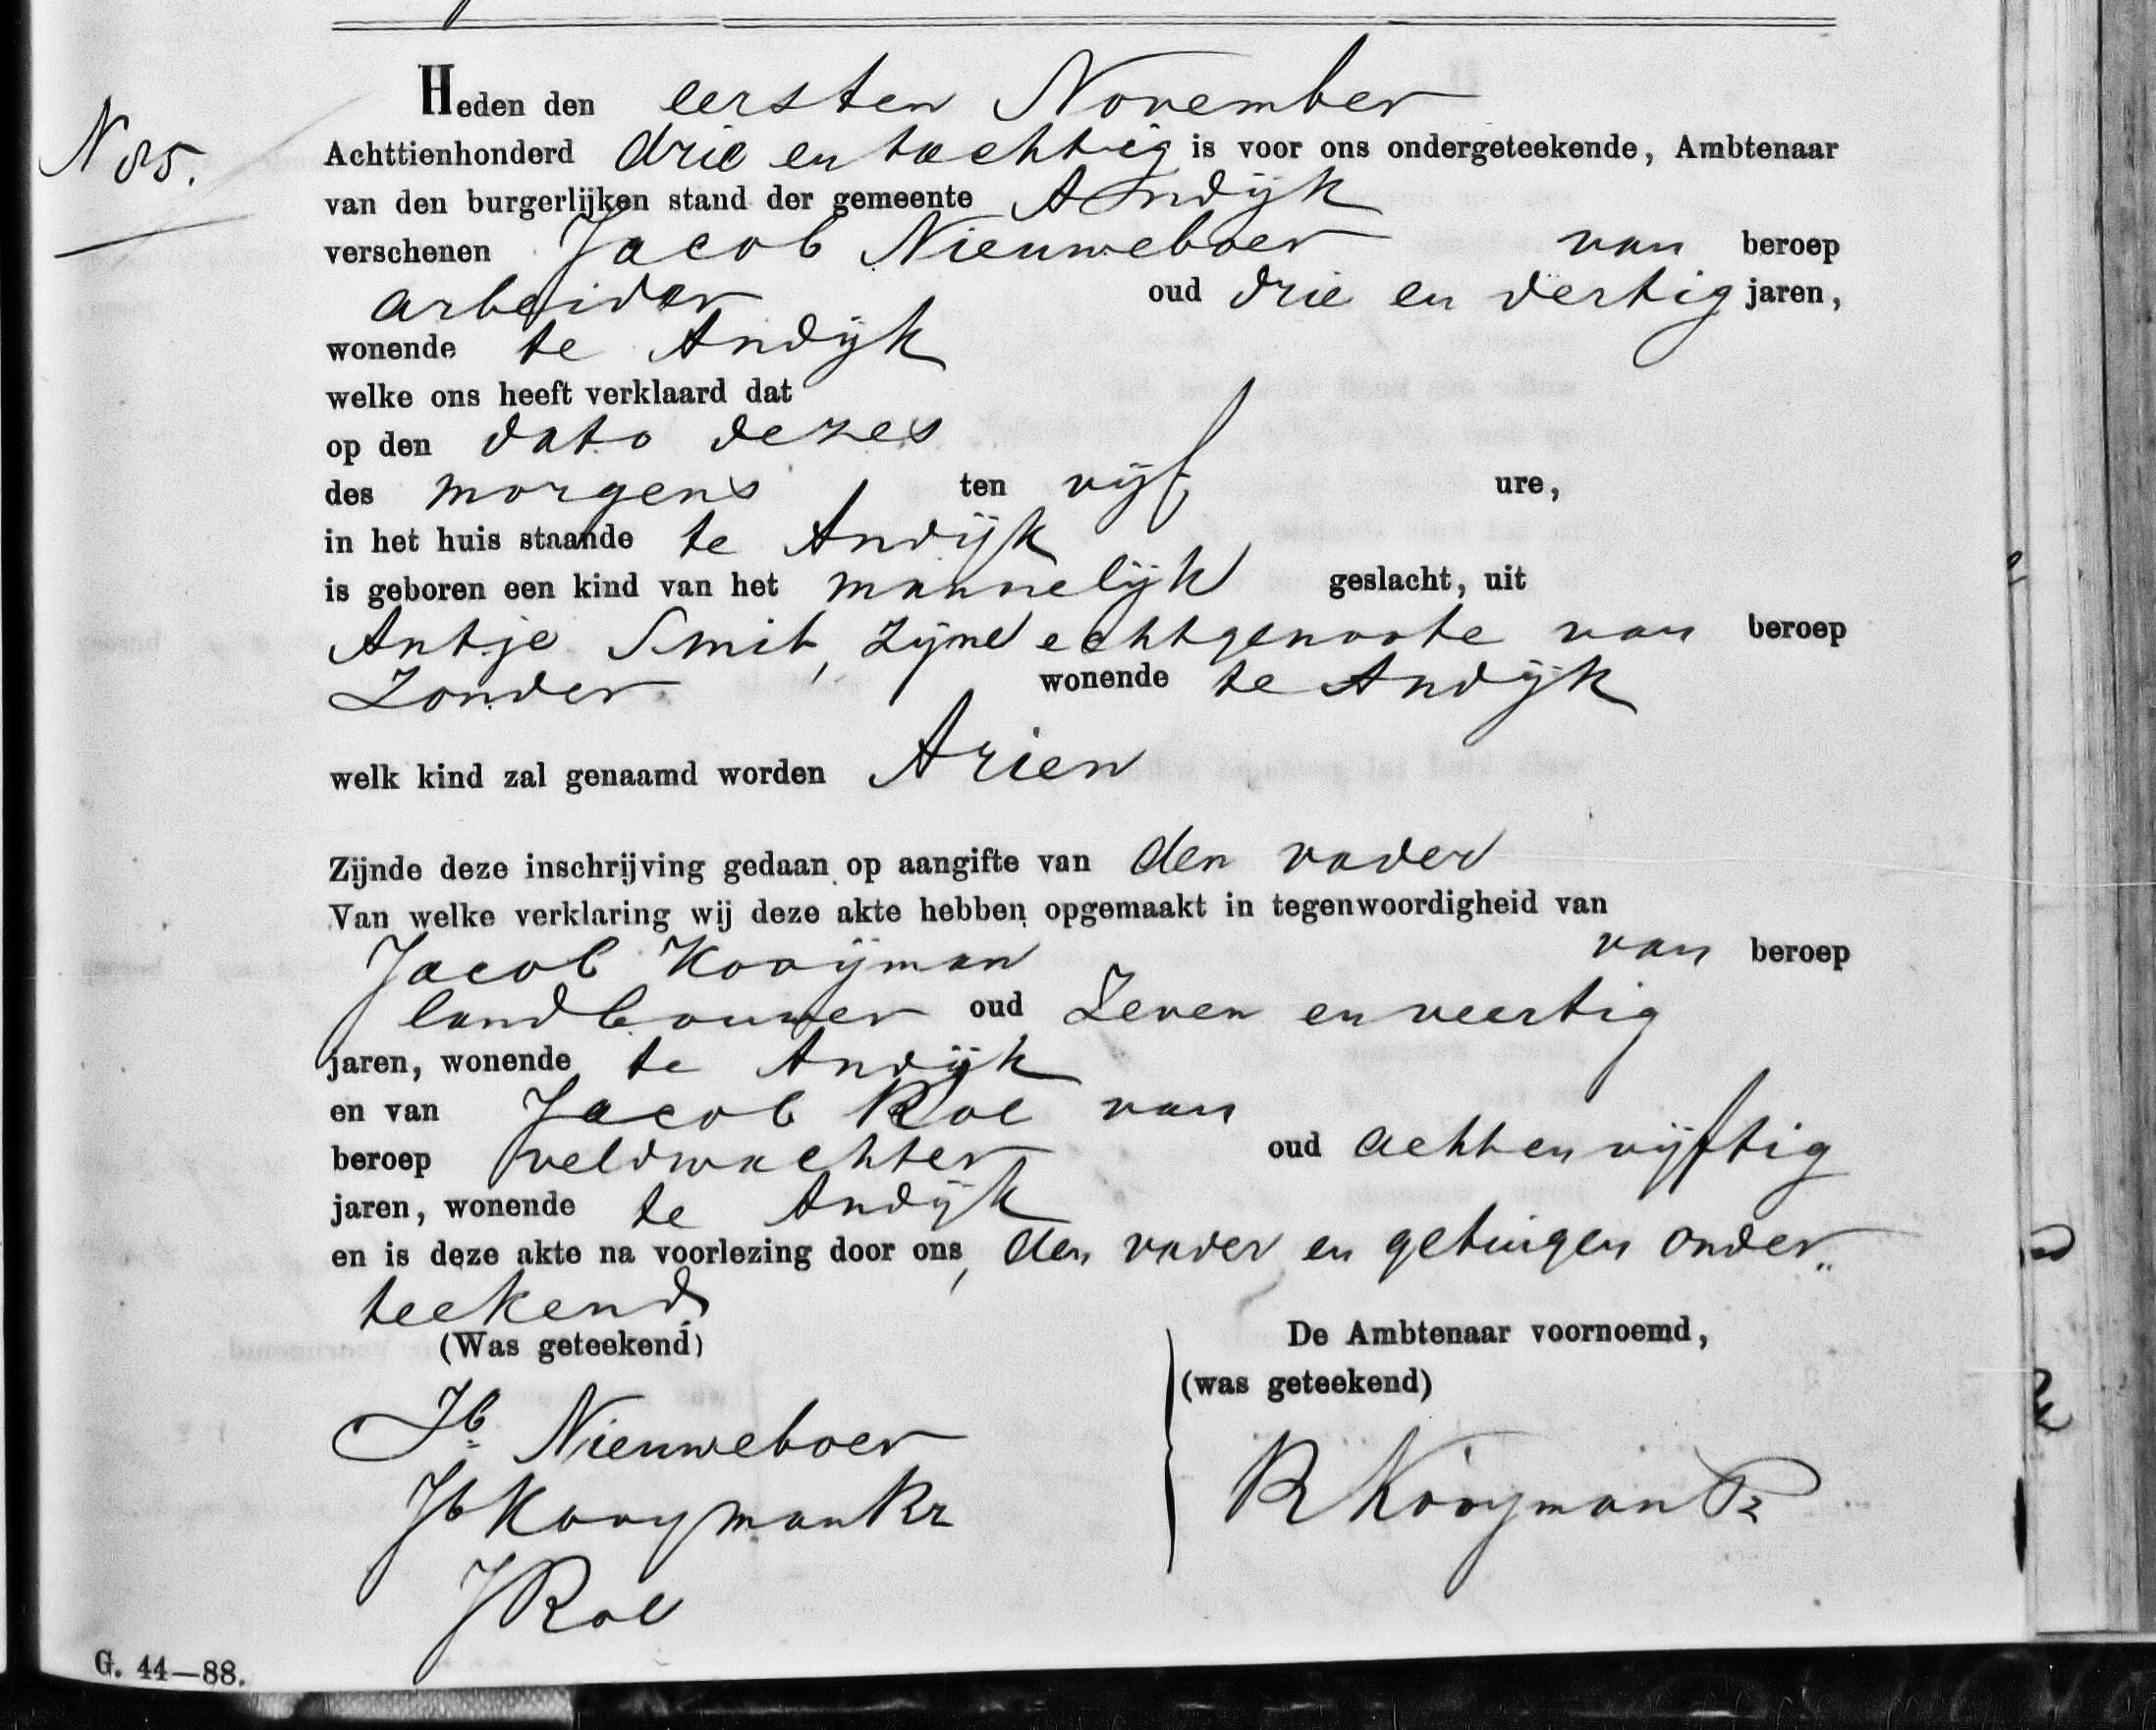 N 85.
Heden den eersten November
Achttienhonderd drie en tachtig is voor ons ondergeteekende, Ambtenaar
van den burgerlijken stand der gemeente Andijk
verschenen Jacob Nieuweboer van beroep
arbeider oud drie en dertig jaren,
wonende te Andijk
welke ons heeft verklaard dat
op den dato dezes
des morgens ten vijf ure,
in het huis staande te Andijk
is geboren een kind van het mannelijk geslacht, uit
Antje Smit, zijne echtgenoote van beroep
Zonder wonende te Andijk
welk kind zal genaamd worden Arien
Zijnde deze inschrijving gedaan op aangifte van den vader
Van welke verklaring wij deze akte hebben opgemaakt in tegenwoordigheid van
Jacob Kooijman van beroep
landbouwer oud Zeven en veertig
jaren, wonende te Andijk
en van Jacob Rol van
beroep veldwachter oud acht en vijftig
jaren, wonende te Andijk
en is deze akte na voorlezing door ons, den vader en getuigen onder„
teekend.
(Was geteekend) De Ambtenaar voornoemd,
(was geteekend)
Jb Nieuweboer
Jb Kooyman Rz R Kooyman Pz
J Rol
G. 44—88.